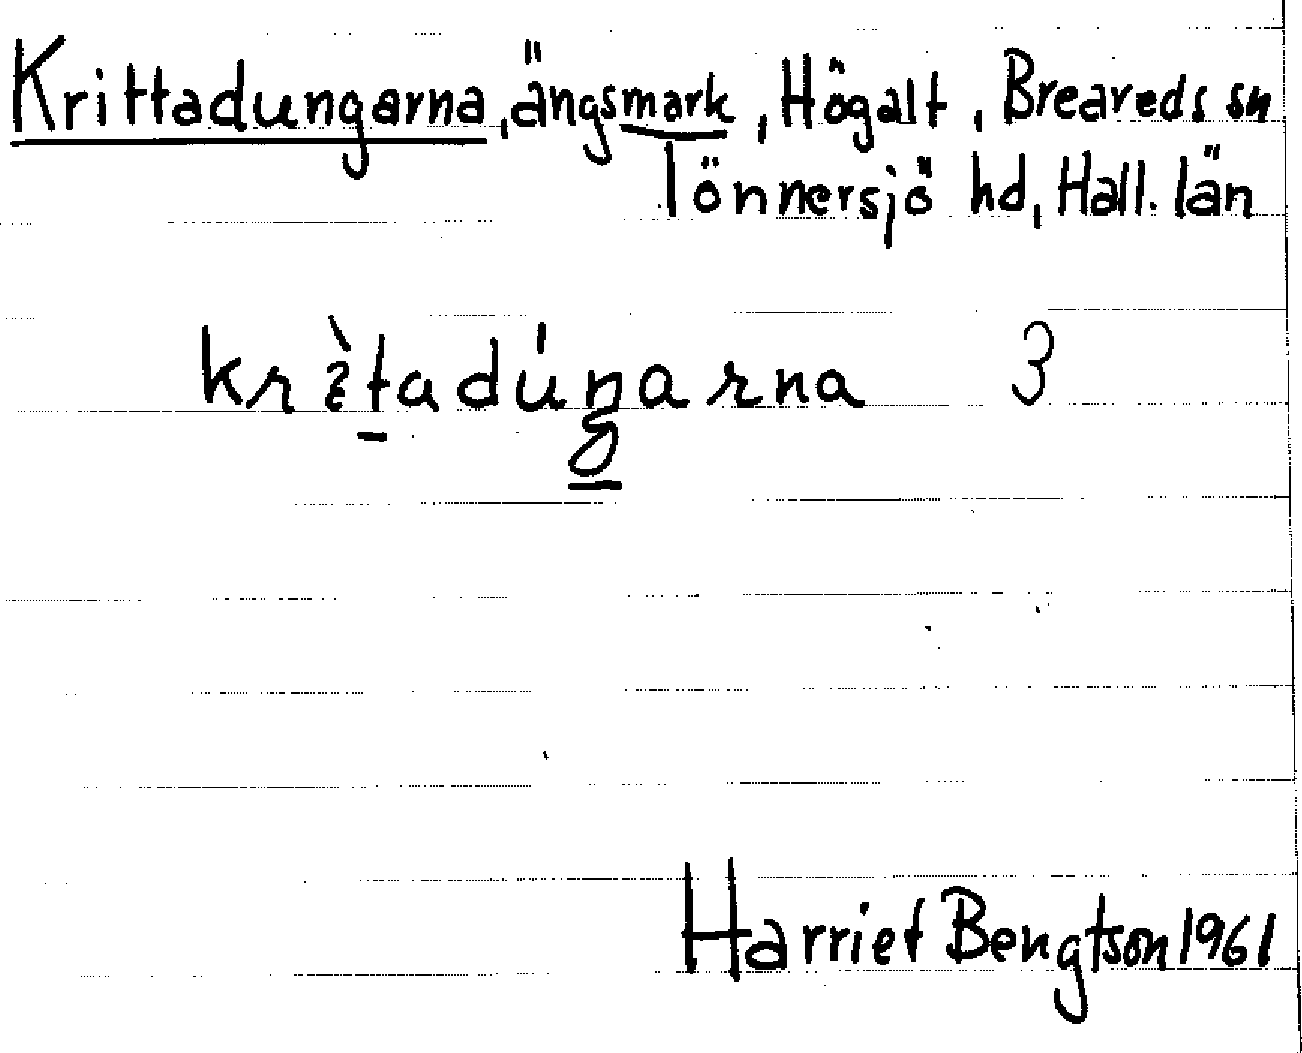 Krittadungarna, ängsmark, Högalt, Breareds sn
Tönnersjö hd, Hall. län
krìtadúngarna 3
Harriet Bengtson 1961